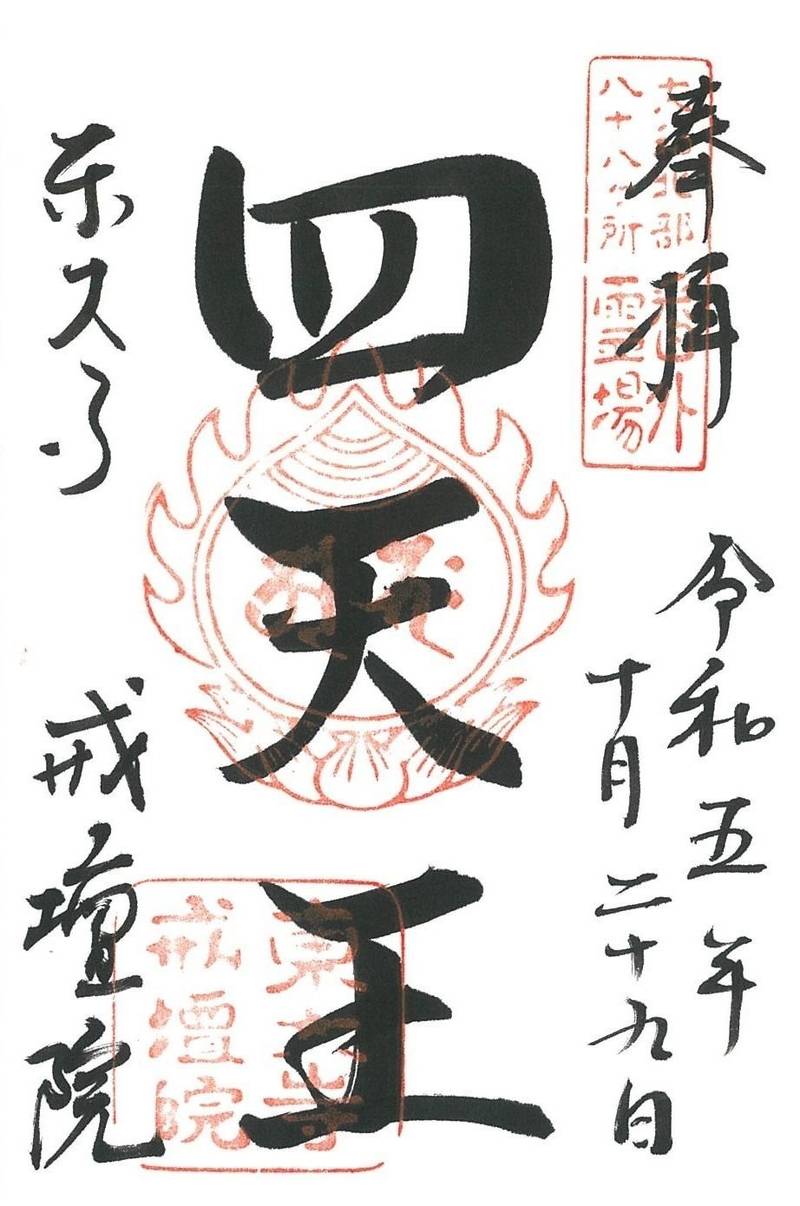 奉拝
大和北部番外
八十八ヶ所霊場
令和五年
十月二十九日
四天王
東大寺
戒壇院
東大寺
戒壇院